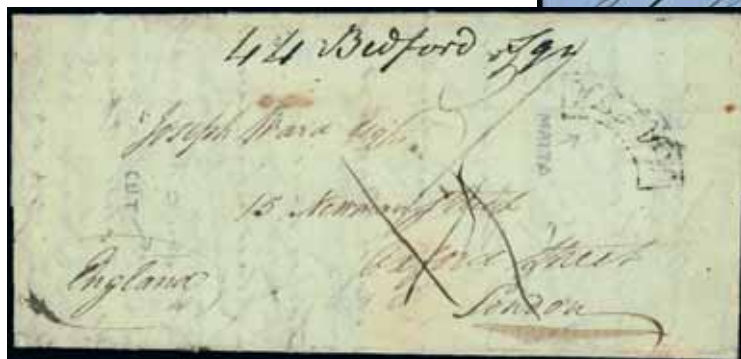 44 Bedford Sqr
Joseph Ward Esqr.
MALTA
15 Newman Street
Oxford Street
England
London